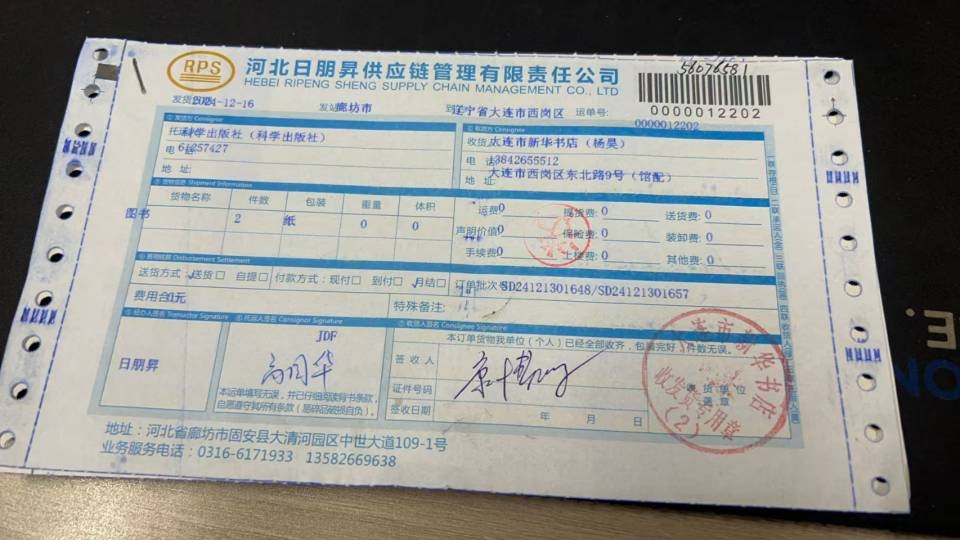 RPS
河北日朋昇供应链管理有限责任公司
HEBEI RIPENG SHENG SUPPLY CHAIN MANAGEMENT CO., LTD
56076581
0000012202
发货 2024-12-16 发站 廊坊市 到 辽宁省大连市西岗区 运单号: 0000012202
① 发货方 Consignor
② 收货方 Consignee
托运 科学出版社（科学出版社）
收货人 大连市新华书店（杨昊）
电话 61257427
电 话 13842655512
地址:
地址: 大连市西岗区东北路9号（馆配）
③ 货物信息 Shipment Informations
货物名称 件数 包装 重量 体积
图书 2 纸 0 0
运费 0 提货费: 0 送货费: 0
声明价值 0 保险费: 0 装卸费: 0
手续费 0 上楼费: 0 其他费: 0
Disbursement Settlement
送货方式: 送货□ 自提□ 付款方式: 现付□ 到付□ 月结□ 订单批次号 SD24121301648/SD24121301657
费用合 0元
特殊备注:
⑤ 经办人签名 Transactor Signature
⑥ 托运人签名 Consignor Signature
⑦ 收货人签名 Consignee Signature
JDF
日朋昇
本订单货物我单位（个人）已经全部收齐，包装完好，件数无误。
签收人
证件号码
收货单位
盖章
签收日期 年 月 日
本运单填写无误，并已仔细阅读背书条款，
自愿遵守其所有条款（易碎品破损自负）。
大连市新华书店
收发货专用章
(2)
地址: 河北省廊坊市固安县大清河园区中世大道109-1号
业务服务电话: 0316-6171933 13582669638